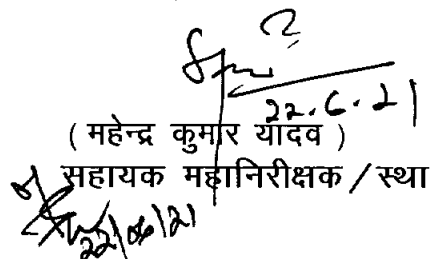 22.6.21
( महेन्द्र कुमार यादव )
सहायक महानिरीक्षक / स्था
22/06/21